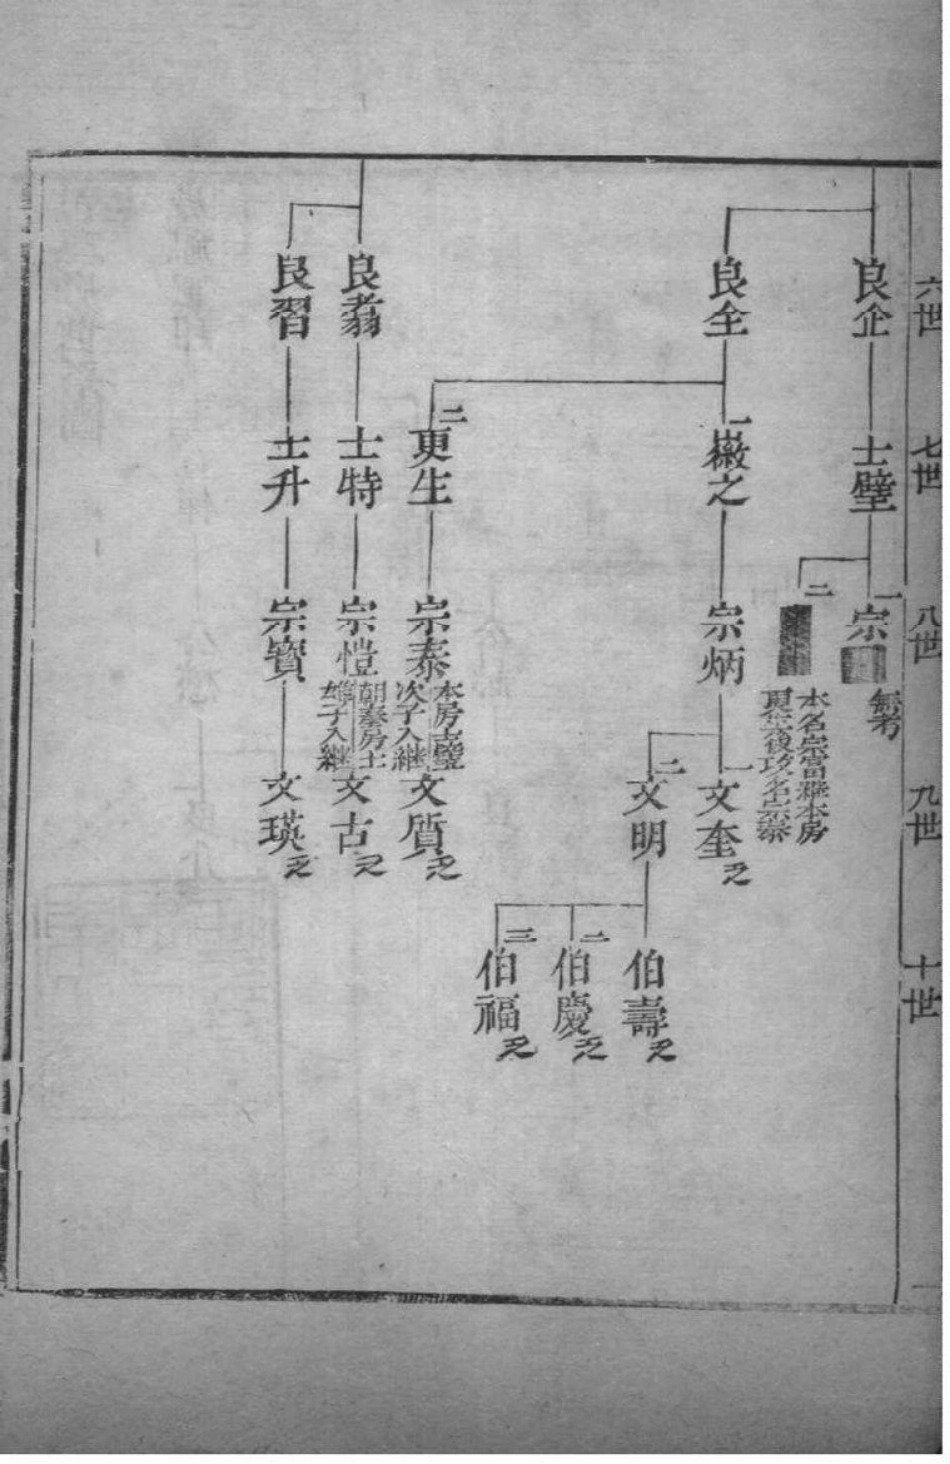 六世
七世
八世
九世
十世
良企
士璧
一
宗
無考
二
本名宗富繼本房
更生後改名宗泰
良全
一
徽之
宗炳
一
文奎
二
文明
伯壽
二
伯慶
三
伯福
二
更生
宗泰
本房士璧
次子入繼
文質
良翥
士特
宗愷
朝奏房士
雄子入繼
文古
良習
士升
宗寶
文瑛